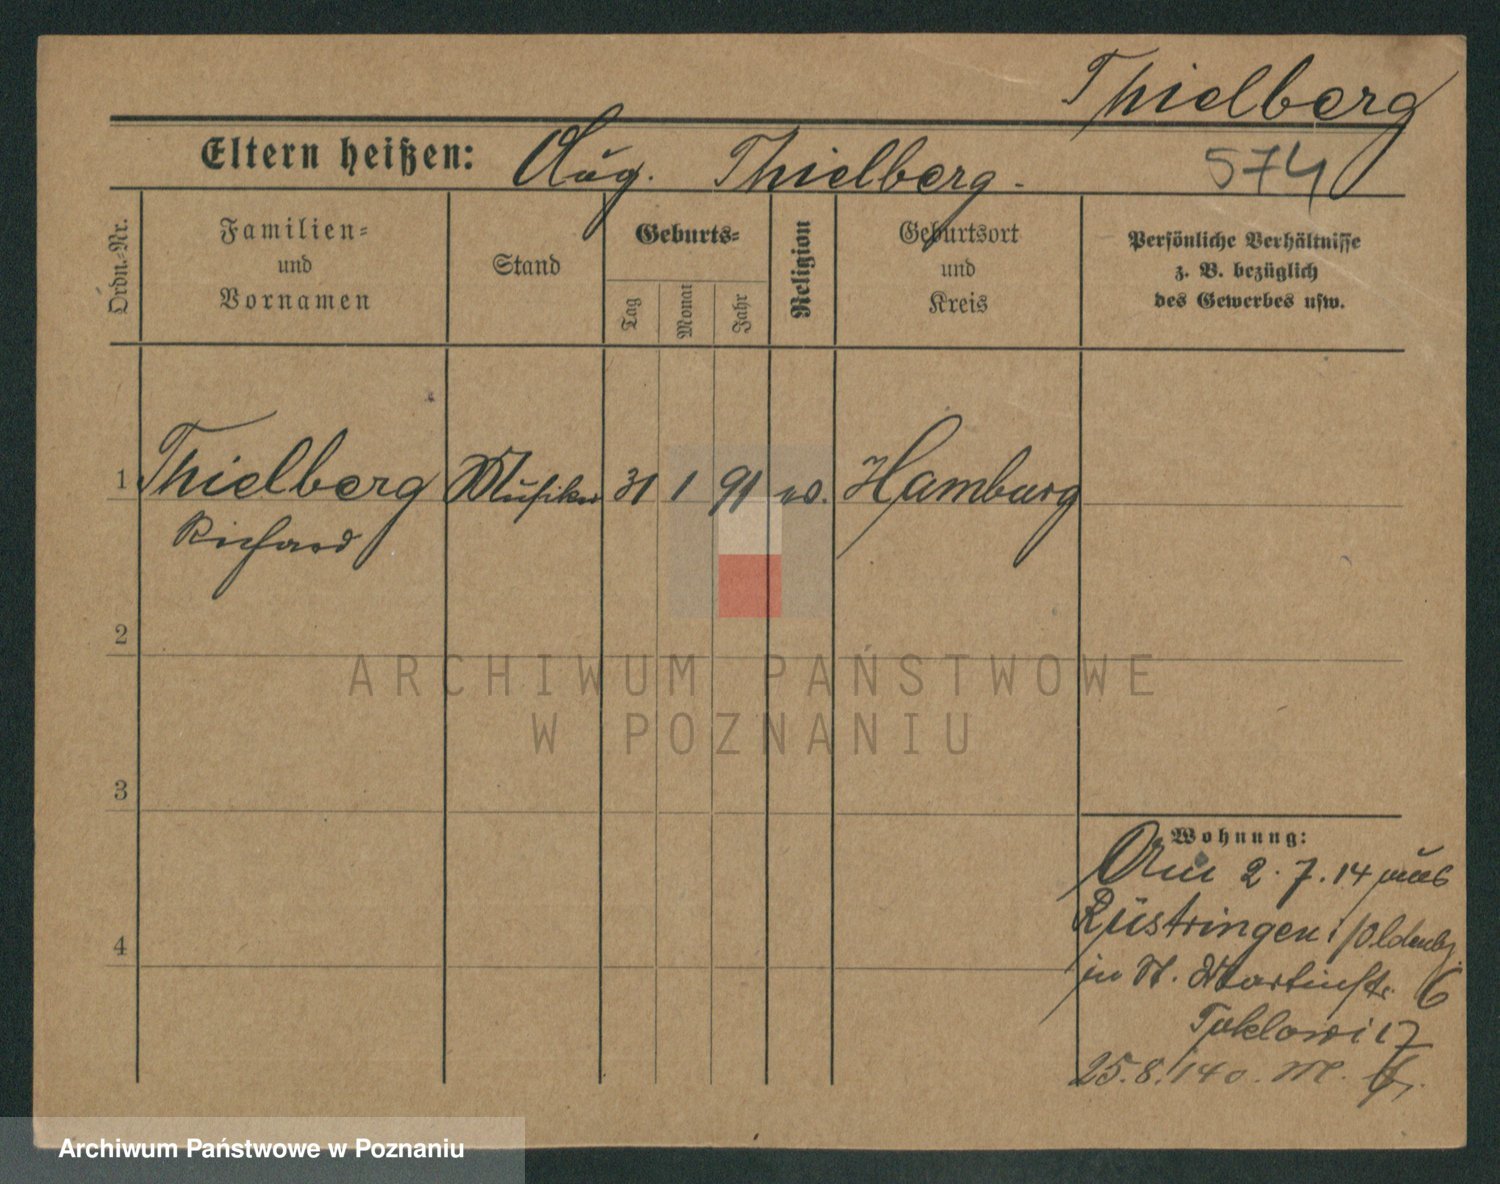 Thielberg
Eltern heißen: Aug. Thielberg.
574
Ordn.-Nr.
Familien-
und
Vornamen
Stand
Geburts-
Tag
Monat
Jahr
Religion
Geburtsort
und
Kreis
Persönliche Verhältnisse
z. B. bezüglich
des Gewerbes usw.
1 Thielberg Musiker 31 1 91 ev. Hamburg
Richard
2
3
4
Wohnung:
Am 2.7.14 aus
Rüstringen i/Oldenbg.
in St. Martinstr. 6
25.8.14
ARCHIWUM PAŃSTWOWE
W POZNANIU
Archiwum Państwowe w Poznaniu